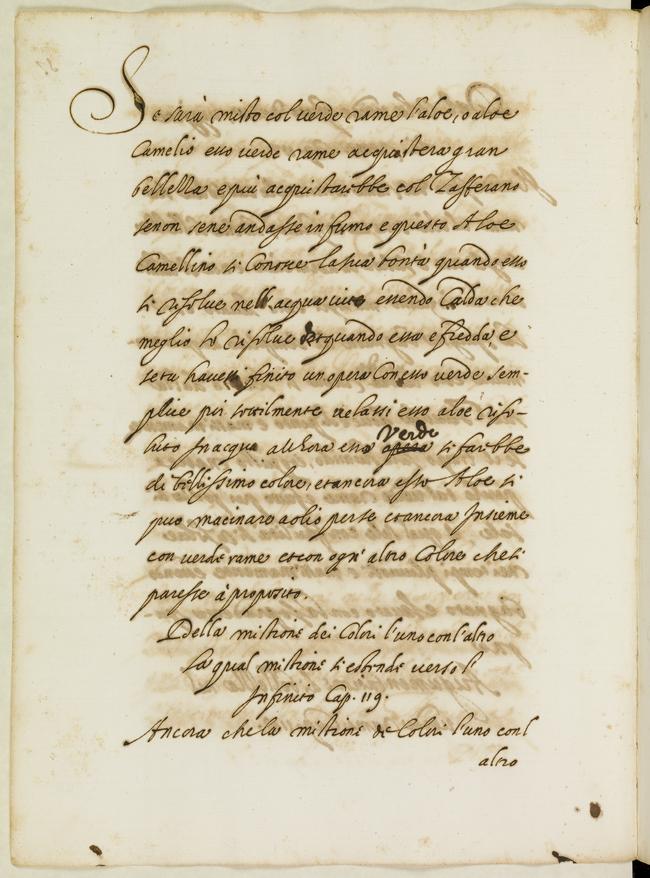 Se sarà misto col verde rame l'aloe, o aloe
Camelio esso verde rame acquisterà gran
bellezza e più acquistarebbe col Zafferano
se non sene andasse in fumo e questo Aloe
Camellino si Conosce la sua bontà quando esso
si risolve nell acqua vite essendo Calda che
meglio lo risolve quando essa e fredda e
se tu havessi finito un opera Con esso verde sem-
plice poi sotilmente velassi esso aloe riso-
luto In acqua allhora essa opera verde si farebbe
di bellissimo colore, et ancora esso Aloe si
puo macinare a olio per se et ancora Insieme
con verde rame et con ogn' altro Colore che ti
paresse à proposito.
Della mistione dei Colori l'uno con l'altro
la qual mistione si estende verso l'
Infinito Cap. 119.
Ancora che la mistione de Colori l'uno con l
altro